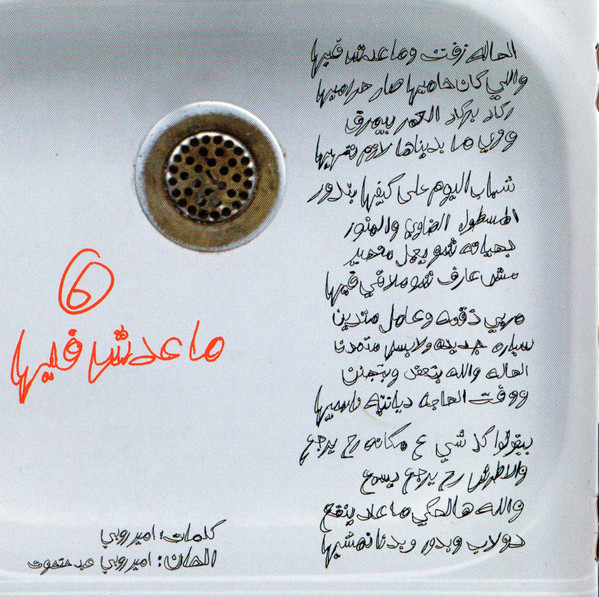 الحاله زفت وما عدش فيها
واللي كان حاميها صار حراميها
ركاد يركاد العمر بيمرق
وزي ما بديناها لازم ننهيها
شباب اليوم على كيفها بتدور
المسطول الضاوي والمنور
بهيانه شو يعمل متحير
مش عارف شو ملاقي فيها
مربي ذقنه وعامل متدين
سياره جديده ولابس متمدن
الحاله والله بتعقد وبتجنن
ووقت الحاجه ديانته ناسيها
بيقولوا كل شي ع مكانه رح يرجع
والاطرش رح يرجع يسمع
والله هالحكي ما عاد ينفع
دولاب وبدور وبدنا نمشيها
6
ما عدش فيها
كلمات: امير روبي
الحان: امير روبي عبد حتحوت